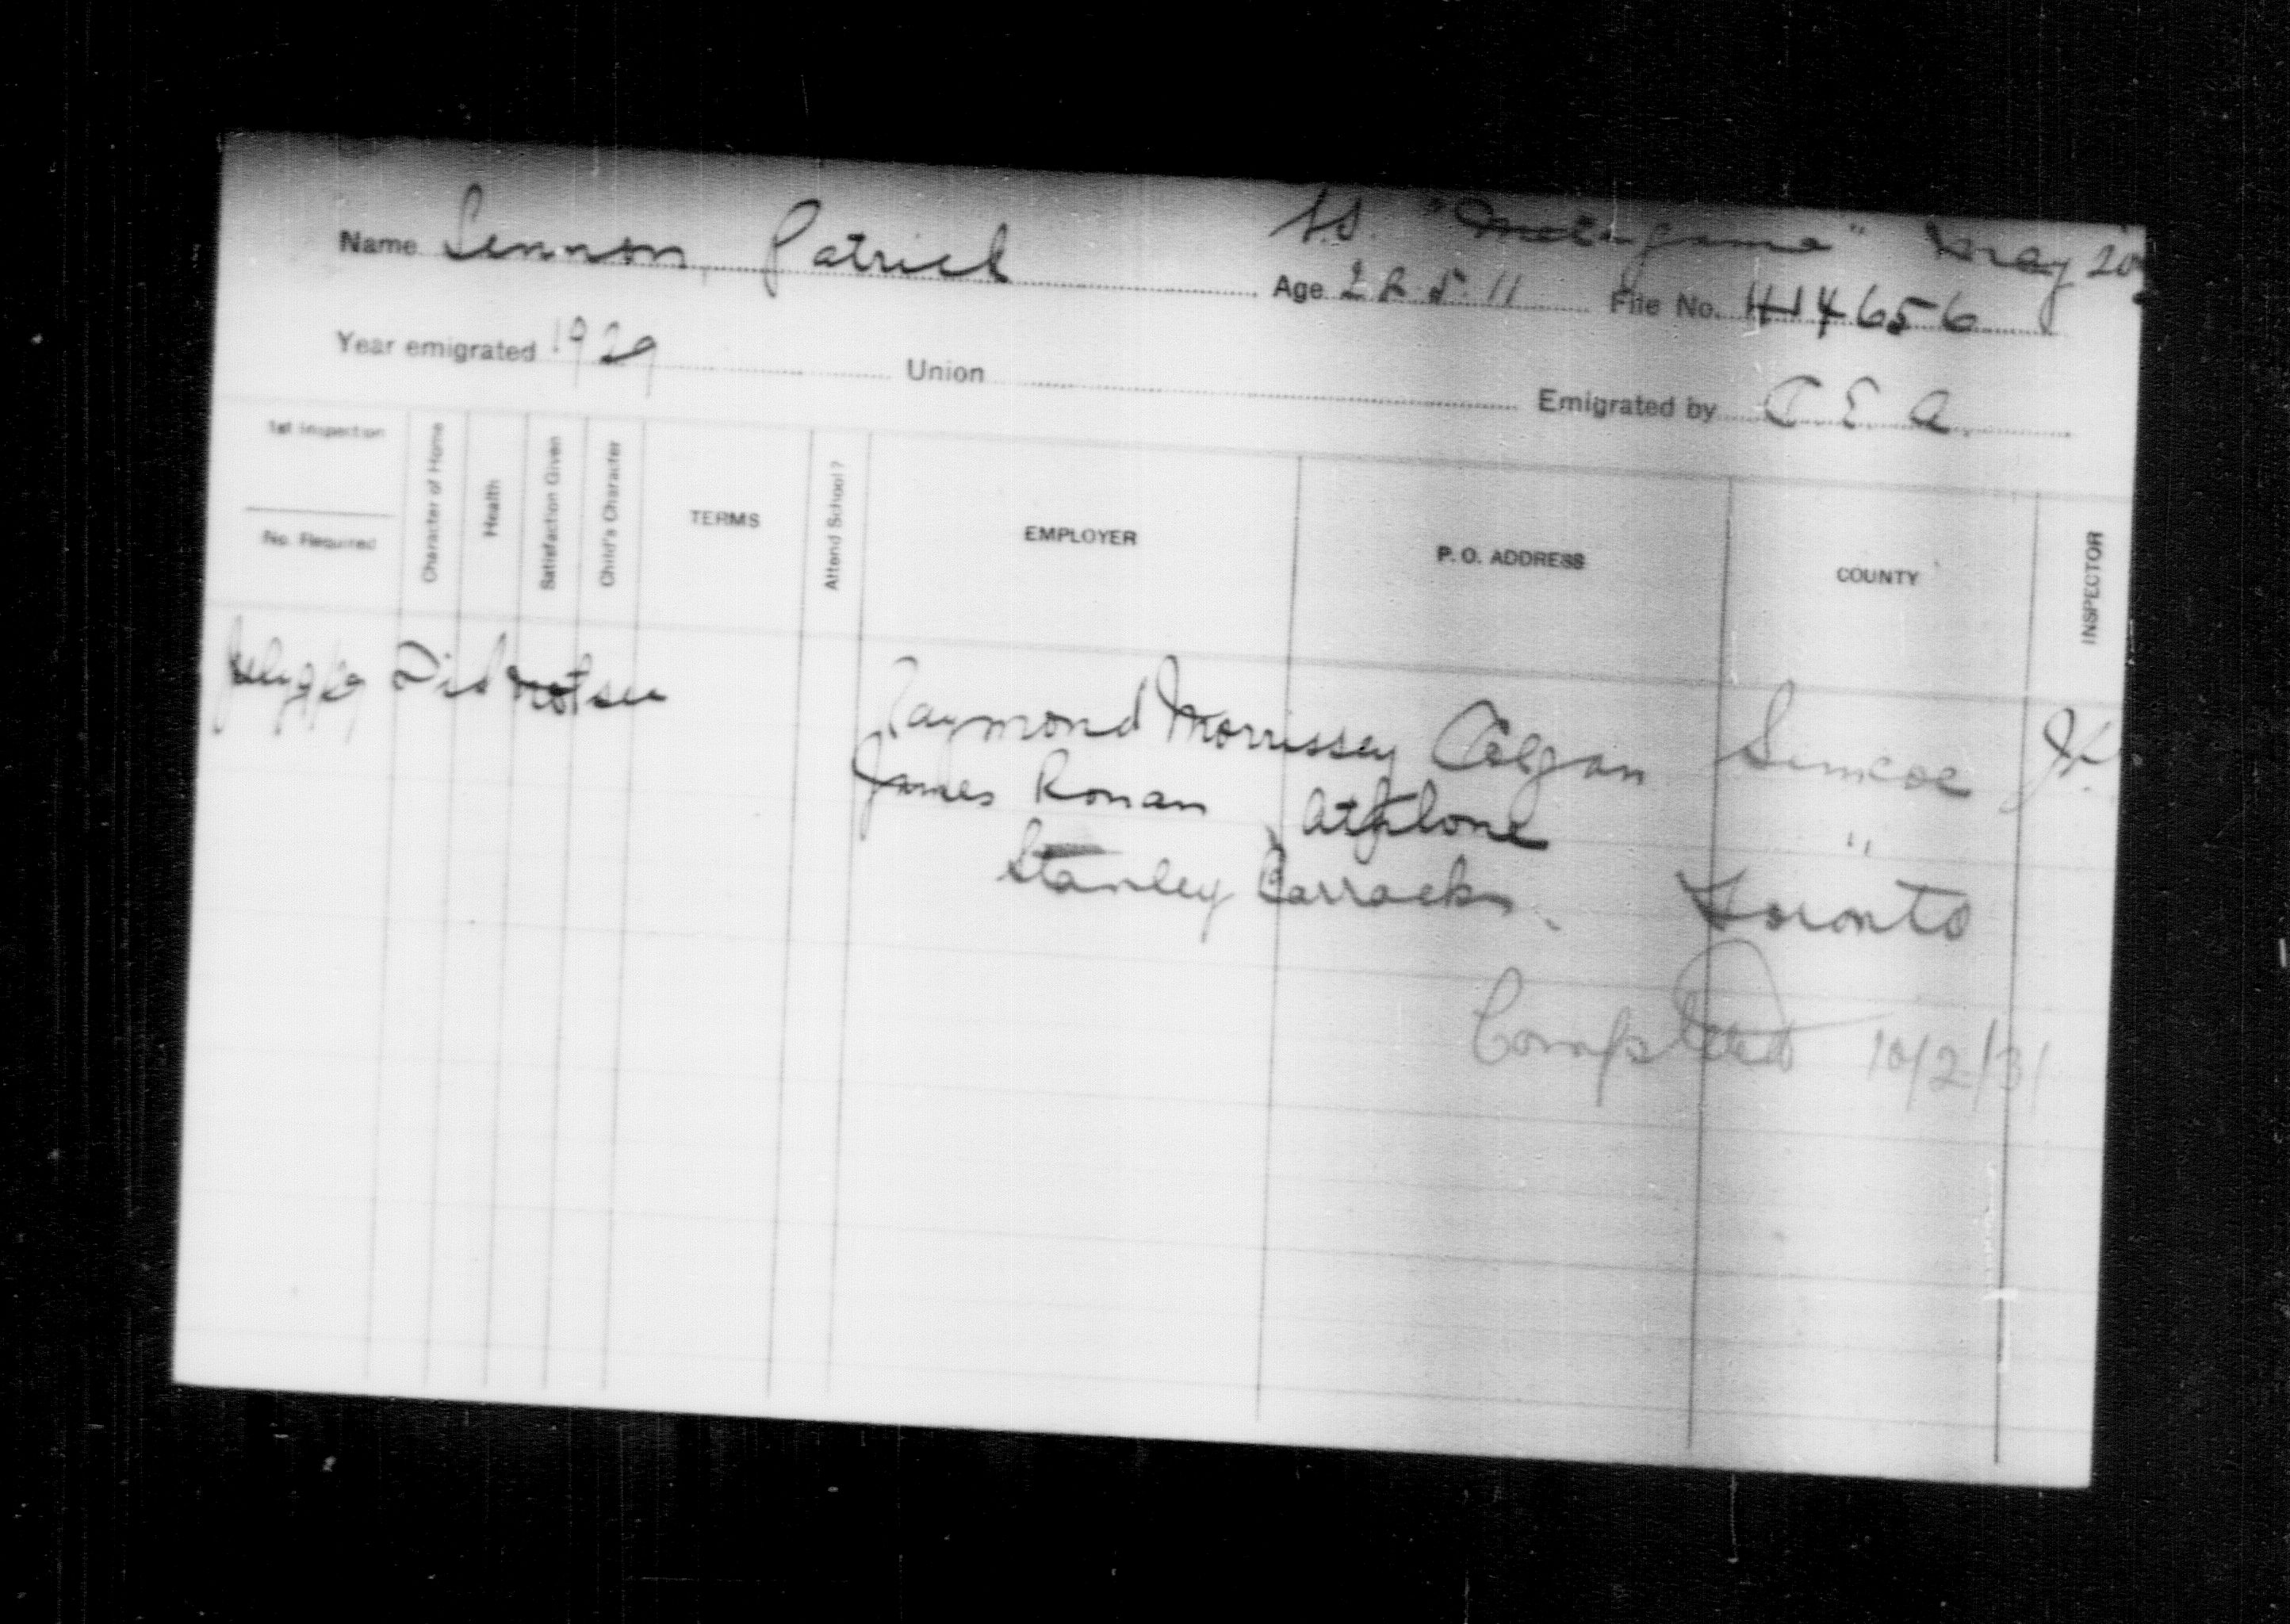 S.S. "Metagama" May 20
Name Lennon, Patrick Age 22.5.11 File No. H14656
Year emigrated 1929 Union Emigrated by C E A.
1st Inspection
No. Required
Character of Home
Health
Satisfaction Given
Child's Character
TERMS
Attend School?
EMPLOYER
P. O. ADDRESS
COUNTY
INSPECTOR
Did not see Raymond Morrissey Colgan Simcoe
James Ronan, Athlone "
Stanley Barracks. Toronto
Completed 10/2/31